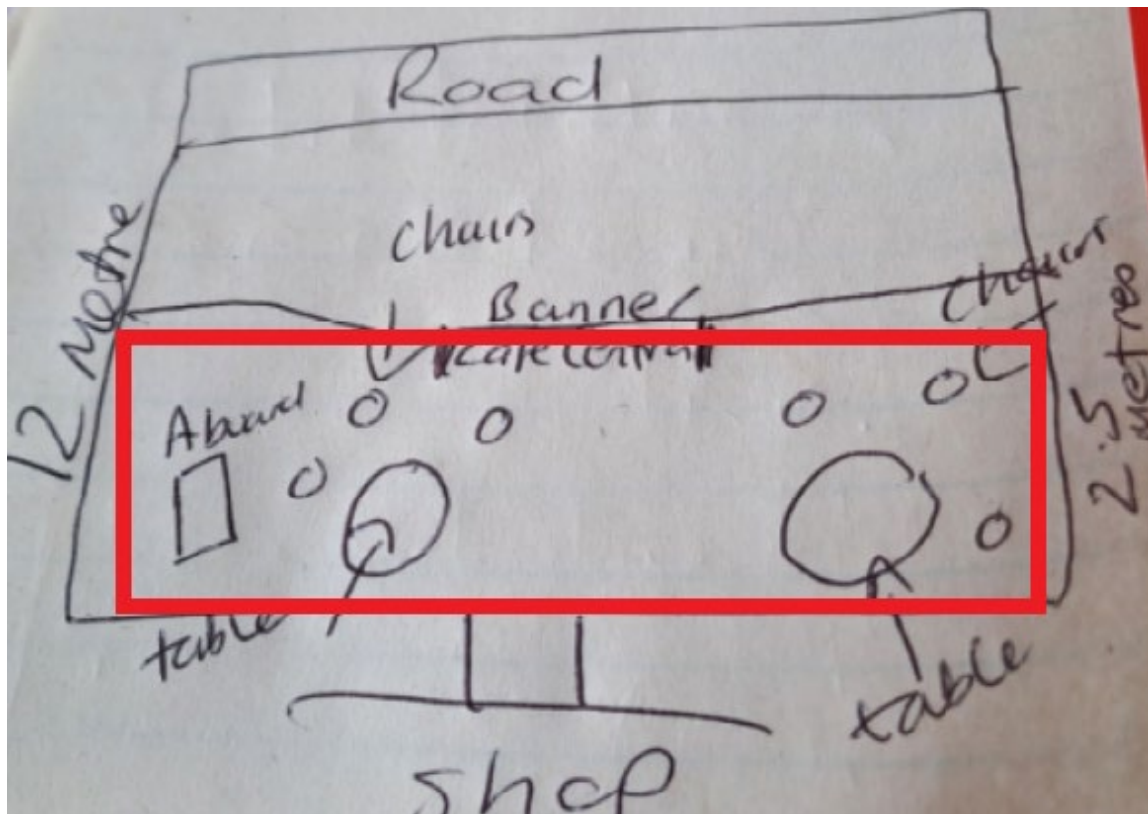 Road
12 Metre
chairs
Banner
chairs
cafe central
2.5 metres
Aboard
table
table
Shop